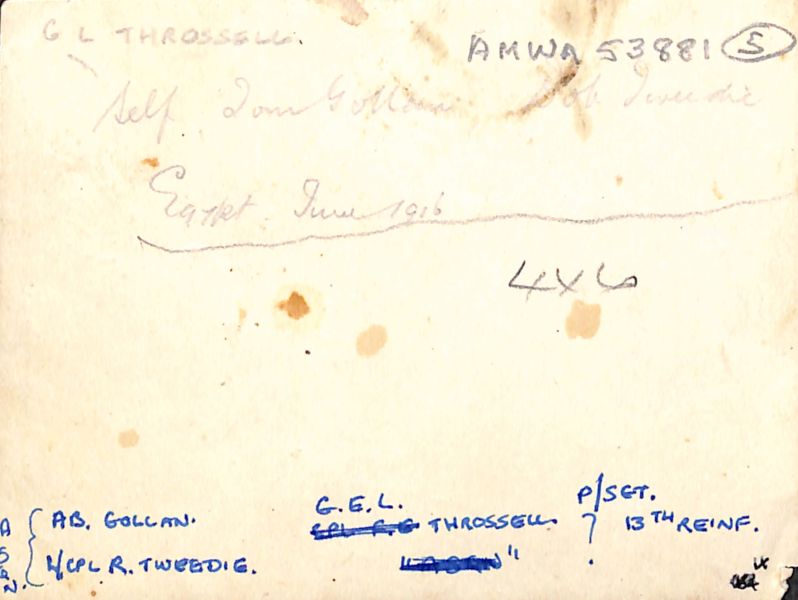 G L THROSSELL.
AMWA 53881 5
Self Tom Gollan Bob Tweedie
Egypt. June 1916
4x6
AB. GOLLAN.
L/CPL R. TWEEDIE.
G.E.L.
THROSSELL
P/SGT.
? 13TH REINF.